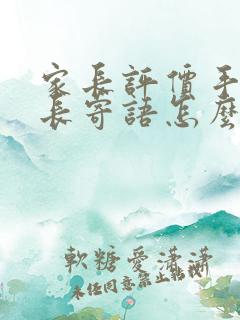 家長評價手
長寄語怎麼
軟糖愛瀟瀟
未经同意禁止转载